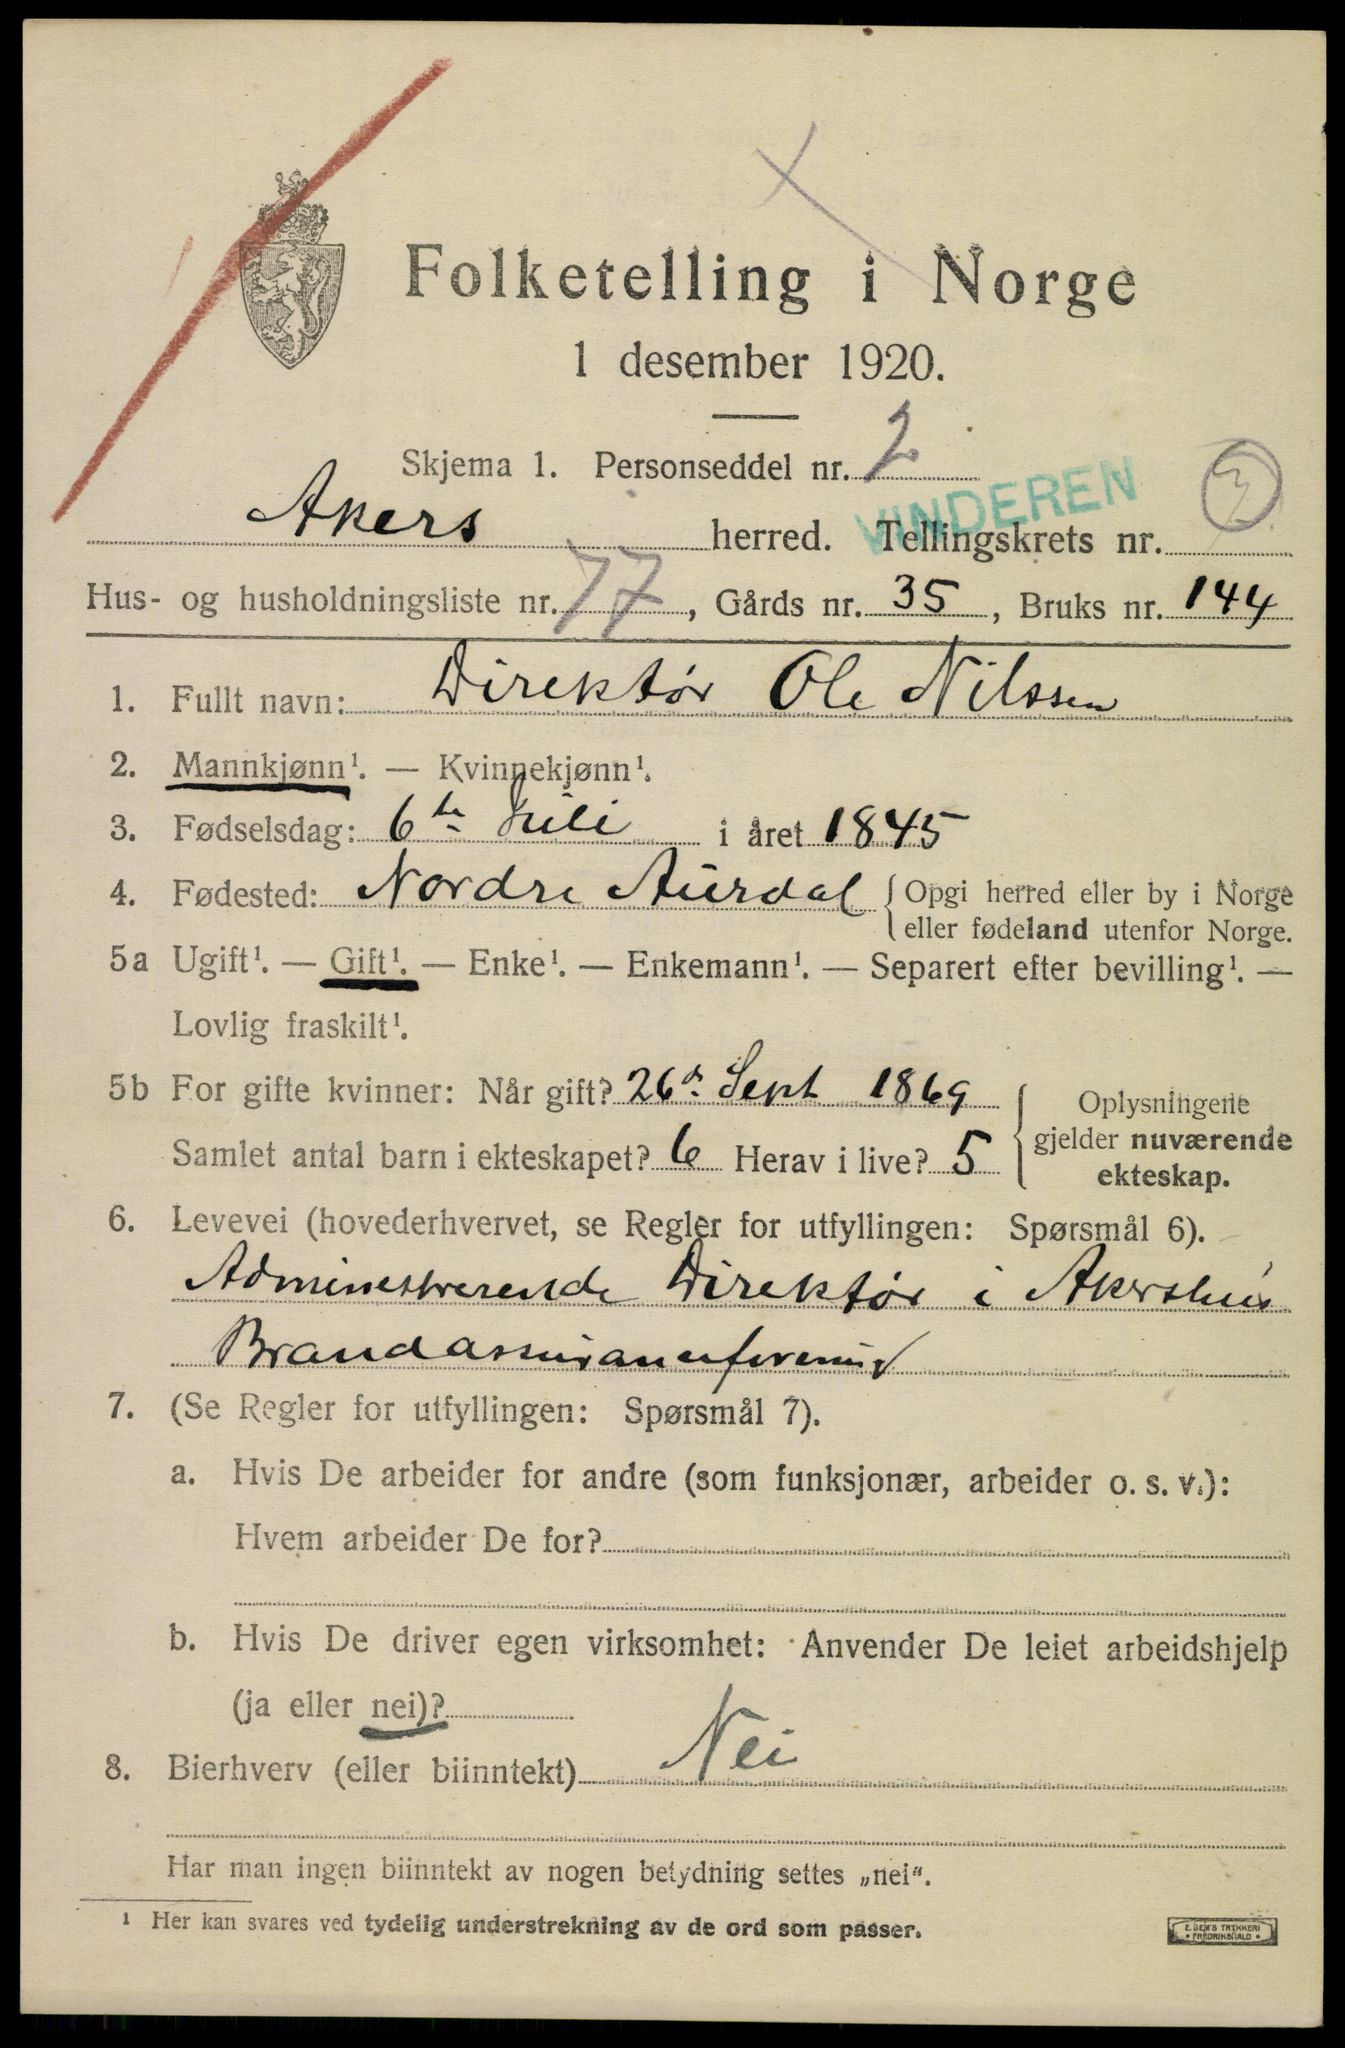 Folketelling i Norge
1 desember 1920.
Skjema 1. Personseddel nr. 2
VINDEREN
Akers herred. Tellingskrets nr. 3
Hus- og husholdningsliste nr. 77, Gårds nr. 35, Bruks nr. 144
1. Fullt navn: Direktør Ole Nilssen
2. Mannkjønn¹. — Kvinnekjønn¹.
3. Fødselsdag: 6te Juli i året 1845
4. Fødested: Nordre Aurdal { Opgi herred eller by i Norge
eller fødeland utenfor Norge.
5a Ugift¹. — Gift¹. — Enke¹. — Enkemann¹. — Separert efter bevilling¹. —
Lovlig fraskilt¹.
5b For gifte kvinner: Når gift? 26d. Sept 1869 { Oplysningene
Samlet antal barn i ekteskapet? 6 Herav i live? 5 gjelder nuværende
ekteskap.
6. Levevei (hovederhvervet, se Regler for utfyllingen: Spørsmål 6).
Administrerende Direktør i Akershus
Brandassuranceforening
7. (Se Regler for utfyllingen: Spørsmål 7).
a. Hvis De arbeider for andre (som funksjonær, arbeider o. s. v.):
Hvem arbeider De for?
b. Hvis De driver egen virksomhet: Anvender De leiet arbeidshjelp
(ja eller nei)?
8. Bierhverv (eller biinntekt) Nei
Har man ingen biinntekt av nogen betydning settes „nei“.
¹ Her kan svares ved tydelig understrekning av de ord som passer.
E. SEM'S TRYKKERI
FREDRIKSHALD